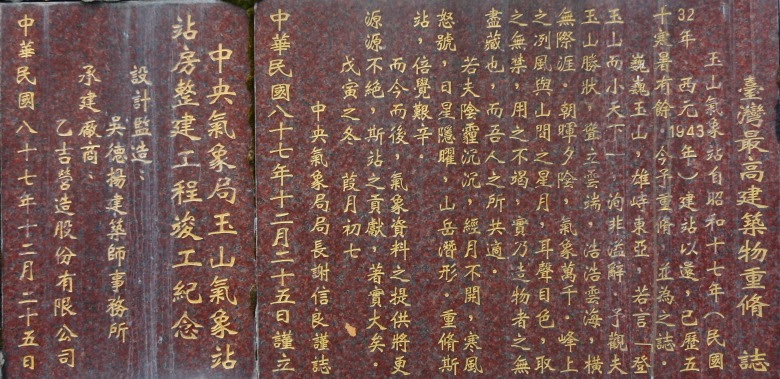 臺灣最高建築物重脩 誌
玉山氣象站自昭和十七年(民國
32年 西元1943年)建站以還,已歷五
十寒暑有餘.今予重脩,並為之誌.
巍巍玉山,雄峙東亞,若言「登
玉山而小天下」,洵非溢辭.予觀夫
玉山勝狀,聳立雲端,浩浩雲海,橫
無際涯.朝暉夕陰,氣象萬千.峰上
之冽風與山間之星月,耳聲目色,取
之無禁,用之不竭,實乃造物者之無
盡藏也,而吾人之所共適.
若夫陰霾沉沉,經月不開,寒風
怒號,日星隱曜,山岳潛形.重脩斯
站,倍覺艱辛.
而今而後,氣象資料之提供將更
源源不絕,斯站之貢獻,著實大矣.
戊寅之冬 葭月初七
中央氣象局局長謝信良謹誌
中華民國八十七年十二月二十五日謹立
中央氣象局玉山氣象站
站房整建工程竣工紀念
設計監造:
吳德揚建築師事務所
承建廠商:
乙吉營造股份有限公司
中華民國八十七年十二月二十五日